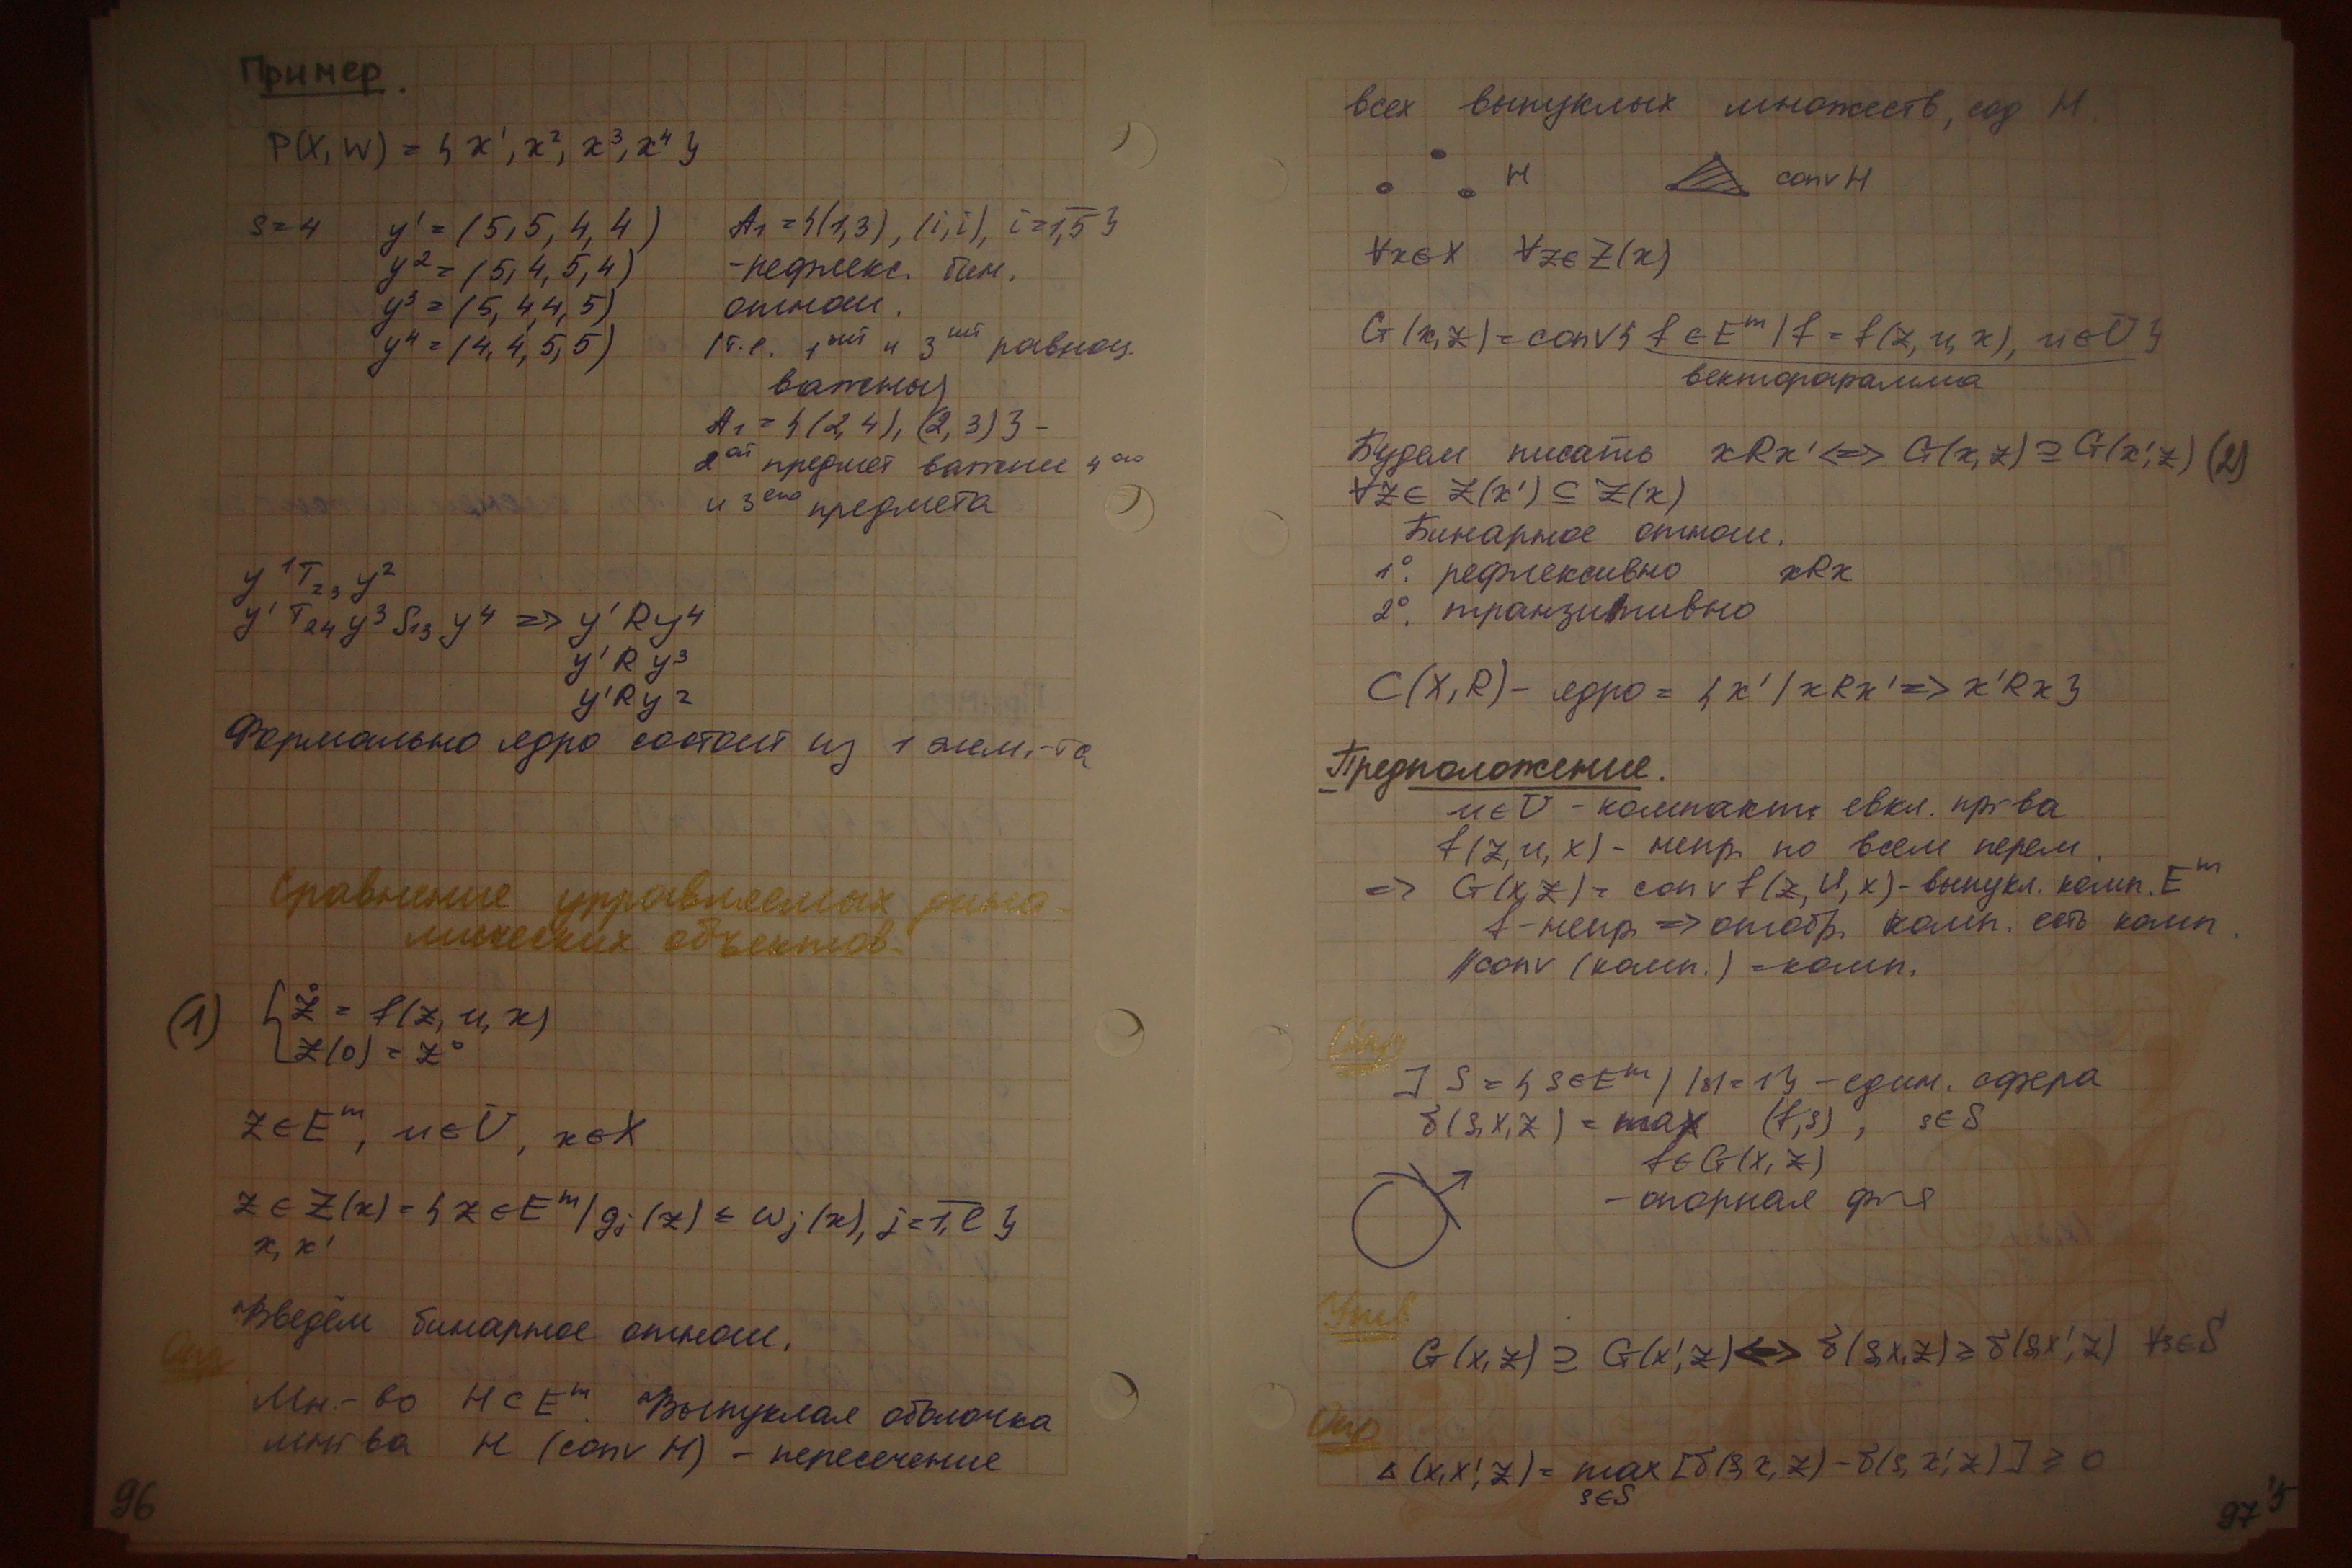 Пример.
P(X, W) = { x¹, x², x³, x⁴ }
s=4 y¹ = (5, 5, 4, 4) A₁ = {(1,3), (i,i), i=1,5}
y² = (5, 4, 5, 4) -рефлекс. бин.
y³ = (5, 4, 4, 5) отнош.
y⁴ = (4, 4, 5, 5) (т.е. 1ый и 3ий равноц.
важны)
A₁ = {(2,4), (2,3)} -
2ой предмет важнее 4ого
и 3его предмета
y¹T₂₃ y²
y¹ T₂₄ y³ S₁₃ y⁴ => y¹Ry⁴
y¹Ry³
y¹Ry²
Формально ядро состоит из 1 элем.-та
Сравнение управляемых дина-
мических объектов.
(1) { ż = f(z, u, x)
z(0) = z⁰
z ∈ Eᵐ, u ∈ U, x ∈ X
z ∈ Z(x) = { z ∈ Eᵐ / gⱼ(z) ≤ wⱼ(x), j=1,l }
x, x'
Введём бинарное отнош.
Опр
Мн.-во H ⊂ Eᵐ. Выпуклая оболочка
мн-ва H (conv H) - пересечение
96
всех выпуклых множеств, сод H.
H conv H
∀x∈X ∀z∈Z(x)
G(x,z) = conv{ f ∈ Eᵐ / f = f(z, u, x), u∈U }
вектограмма
Будем писать xRx' <=> G(x,z) ⊇ G(x',z) (2)
∀z ∈ Z(x') ⊆ Z(x)
Бинарное отнош.
1°. рефлексивно xRx
2°. транзитивно
C(X,R) - ядро = { x' / xRx' => x'Rx }
Предположение.
u∈U - компакт евкл. пр-ва
f(z, u, x) - непр. по всем перем.
=> G(x,z) = conv f(z, U, x) - выпукл. комп. Eᵐ
f - непр. => отобр. комп. есть комп.
//conv (комп.) = комп.
Опр
] S = { s∈Eᵐ / |s|=1 } - един. сфера
δ(s, x, z) = max (f, s), s∈S
f∈G(x, z)
- опорная ф-я
Утв
G(x, z) ⊇ G(x', z) <=> δ(s,x,z) ≥ δ(s,x',z) ∀s∈S
Опр
Δ(x,x',z) = max [δ(s,x,z) - δ(s,x',z)] ≥ 0
s∈S
97